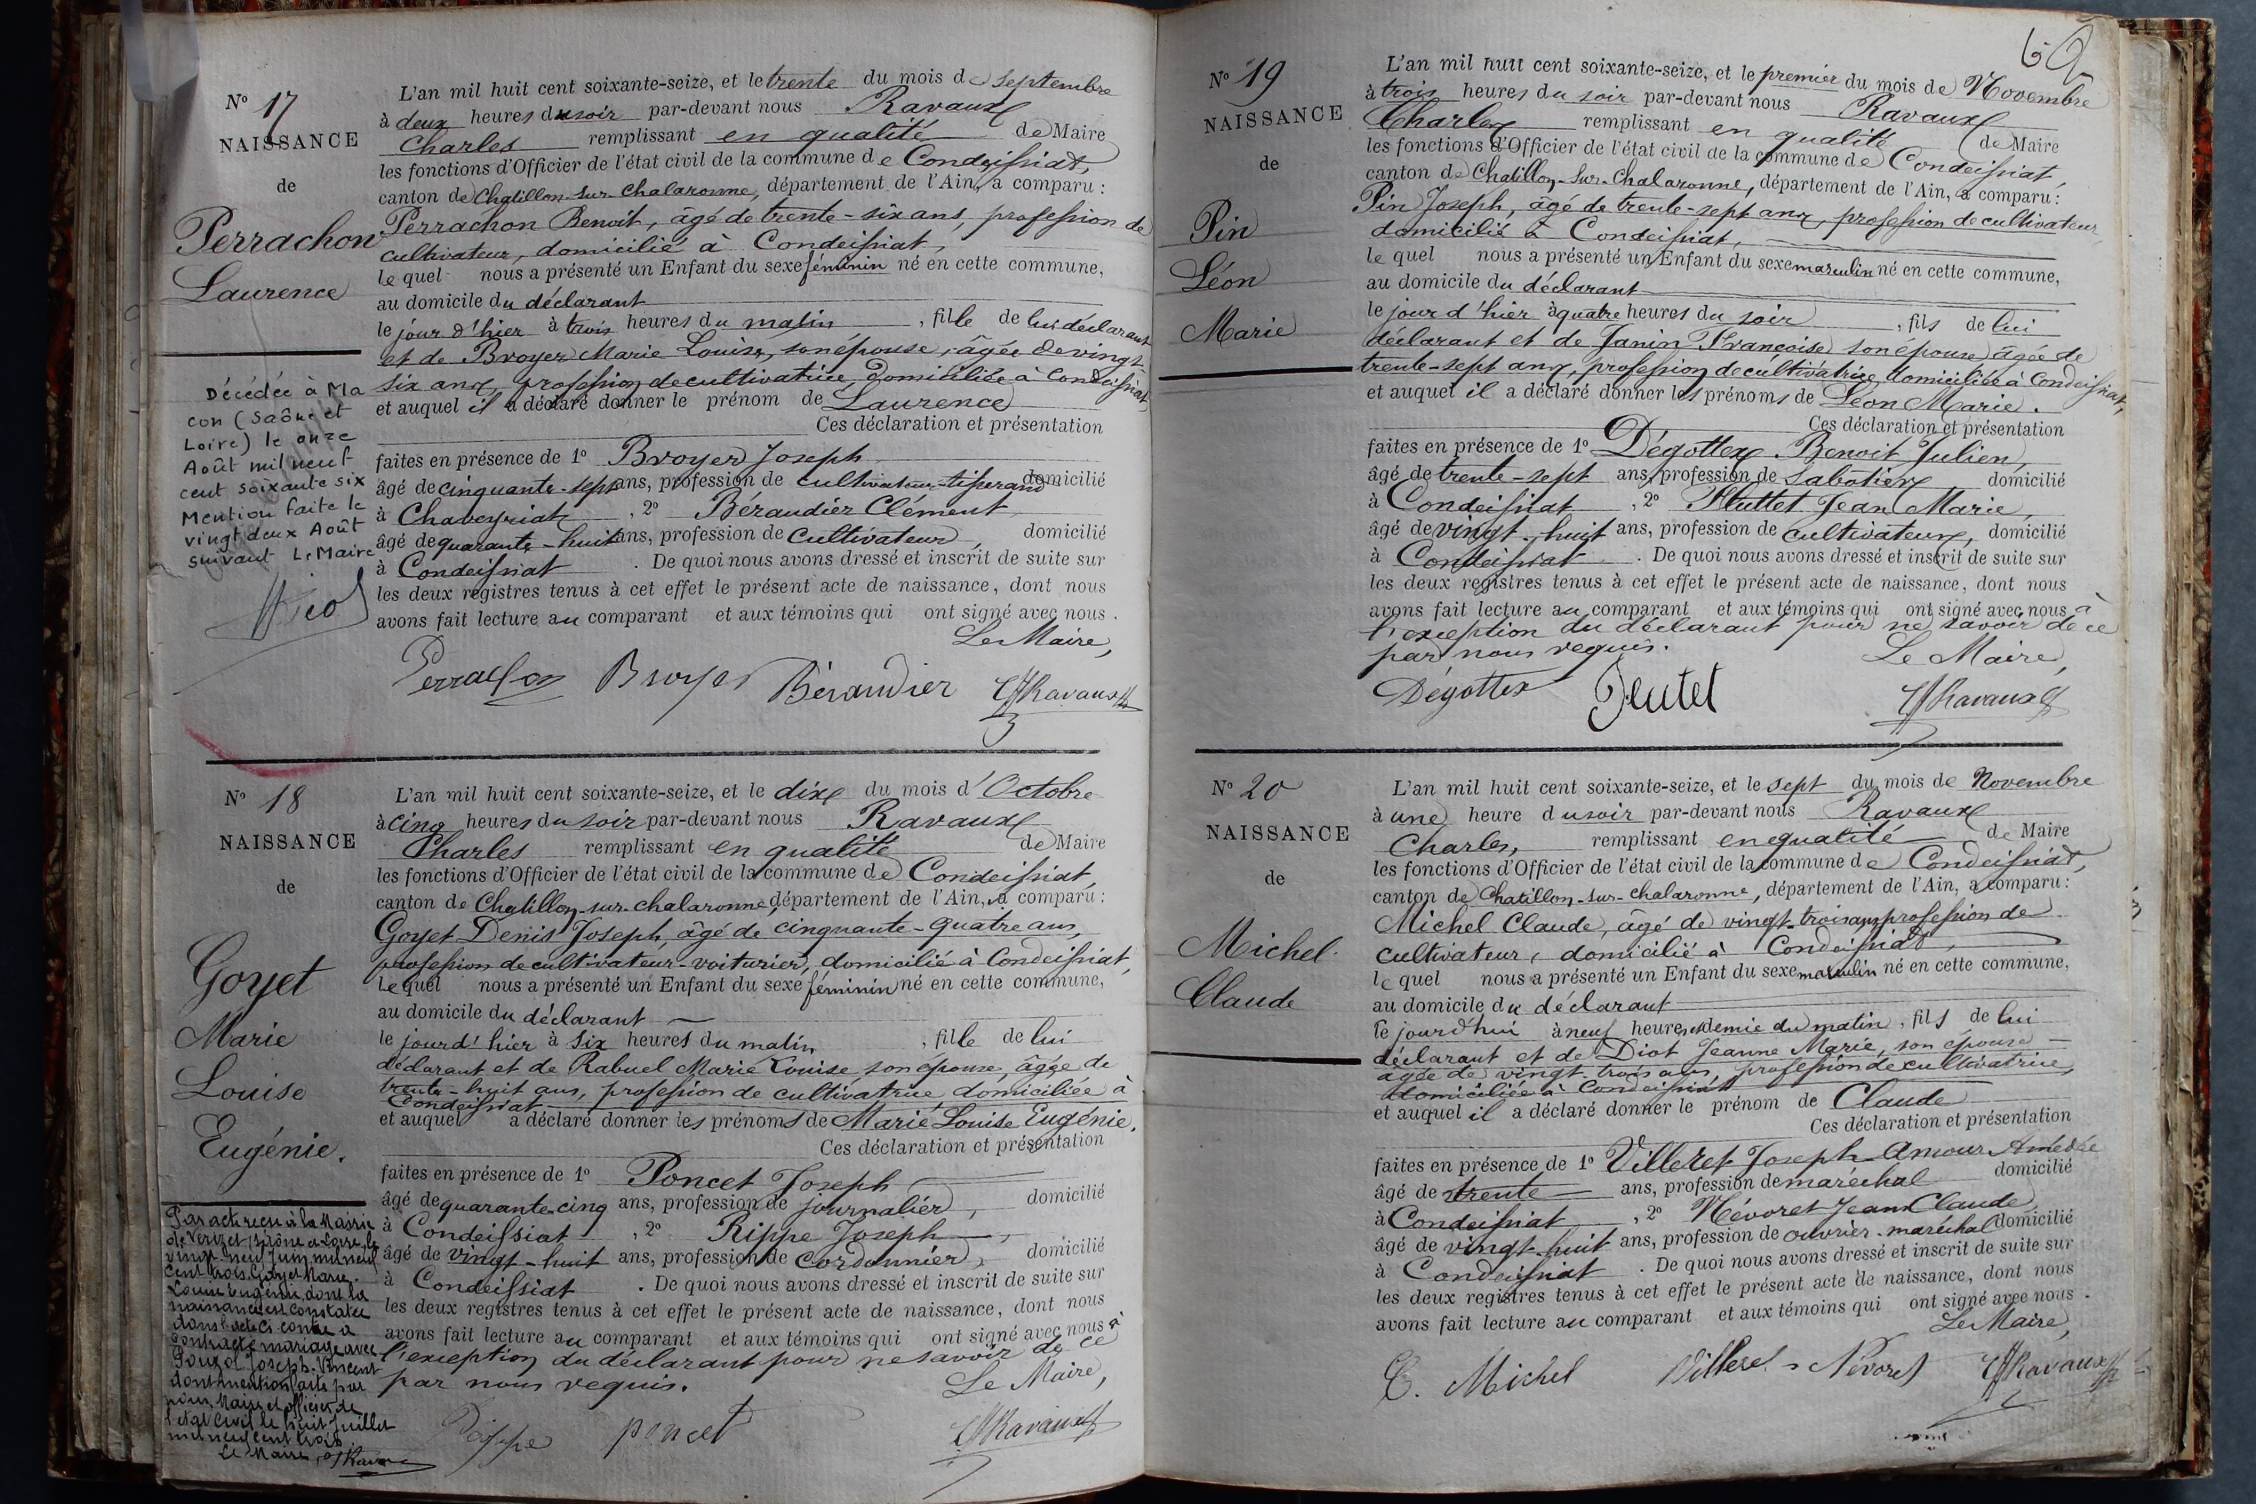 N° 17
NAISSANCE
de
Perrachon
Laurence
Décédée à Ma
con (Saône et
Loire) le onze
Août mil neuf
cent soixante six
Mention faite le
vingt deux Août
suivant Le Maire
L'an mil huit cent soixante-seize, et le trente du mois de septembre
à deux heures du soir par-devant nous Ravaux
Charles remplissant en qualité de Maire
les fonctions d'Officier de l'état civil de la commune de Condeissiat,
canton de Chatillon-sur-Chalaronne, département de l'Ain, a comparu :
Perrachon Benoit, âgé de trente-six ans, profession de
cultivateur, domicilié à Condeissiat,
le quel nous a présenté un Enfant du sexe féminin né en cette commune,
au domicile du déclarant
le jour d'hier à trois heures du matin, fille de lui déclarant
et de Broyer Marie Louise, son épouse, âgée de vingt-
six ans, profession de cultivatrice, domiciliée à Condeissiat,
et auquel il a déclaré donner le prénom de Laurence
Ces déclaration et présentation
faites en présence de 1° Broyer Joseph
âgé de cinquante-sept ans, profession de cultivateur-tisserand domicilié
à Chaveyriat, 2° Béraudier Clément
âgé de quarante-huit ans, profession de cultivateur, domicilié
à Condeissiat. De quoi nous avons dressé et inscrit de suite sur
les deux registres tenus à cet effet le présent acte de naissance, dont nous
avons fait lecture au comparant et aux témoins qui ont signé avec nous.
Le Maire,
Perrachon Broyer Béraudier Ravaux
N° 18
NAISSANCE
de
Goyet
Marie
Louise
Eugénie.
Par acte reçu à la Mairie
de Verizet, Saône et Loire, le
vingt neuf Juin mil neuf
cent trois, Goyet Marie
Louise Eugénie, dont la
naissance est constatée
dans l'acte ci-contre a
contracté mariage avec
Joseph Vincent
dont mention faite par
nous Maire et officier de
l'état civil le huit Juillet
mil neuf cent trois.
Le Maire, Ravaux
L'an mil huit cent soixante-seize, et le dix du mois d'Octobre
à cinq heures du soir par-devant nous Ravaux
Charles remplissant en qualité de Maire
les fonctions d'Officier de l'état civil de la commune de Condeissiat,
canton de Chatillon-sur-chalaronne, département de l'Ain, a comparu :
Goyet Denis Joseph, âgé de cinquante-quatre ans,
profession de cultivateur-voiturier, domicilié à Condeissiat,
le quel nous a présenté un Enfant du sexe féminin né en cette commune,
au domicile du déclarant
le jour d'hier à six heures du matin, fille de lui
déclarant et de Rabuel Marie Louise son épouse, âgée de
trente-huit ans, profession de cultivatrice, domiciliée à
Condeissiat
et auquel a déclaré donner les prénoms de Marie Louise Eugénie.
Ces déclaration et présentation
faites en présence de 1° Poncet Joseph
âgé de quarante-cinq ans, profession de journalier, domicilié
à Condeissiat, 2° Rippe Joseph
âgé de vingt-huit ans, profession de cordonnier, domicilié
à Condeissiat. De quoi nous avons dressé et inscrit de suite sur
les deux registres tenus à cet effet le présent acte de naissance, dont nous
avons fait lecture au comparant et aux témoins qui ont signé avec nous à
l'exception du déclarant pour ne savoir de ce
par nous requis.
Le Maire,
Rippe poncet Ravaux
N° 19
NAISSANCE
de
Pin
Léon
Marie
L'an mil huit cent soixante-seize, et le premier du mois de Novembre
à trois heures du soir par-devant nous Ravaux
Charles remplissant en qualité de Maire
les fonctions d'Officier de l'état civil de la commune de Condeissiat,
canton de Chatillon-sur-Chalaronne, département de l'Ain, a comparu :
Pin Joseph, âgé de trente-sept ans, profession de cultivateur,
domicilié à Condeissiat,
le quel nous a présenté un Enfant du sexe masculin né en cette commune,
au domicile du déclarant
le jour d'hier à quatre heures du soir, fils de lui
déclarant et de Janin Françoise son épouse, âgée de
trente-sept ans, profession de cultivatrice, domiciliée à Condeissiat,
et auquel il a déclaré donner les prénoms de Léon Marie.
Ces déclaration et présentation
faites en présence de 1° Dégottex Benoit Julien,
âgé de trente-sept ans, profession de sabotier domicilié
à Condeissiat, 2° Fluttet Jean Marie,
âgé de vingt-huit ans, profession de cultivateur, domicilié
à Condeissiat. De quoi nous avons dressé et inscrit de suite sur
les deux registres tenus à cet effet le présent acte de naissance, dont nous
avons fait lecture au comparant et aux témoins qui ont signé avec nous à
l'exception du déclarant pour ne savoir de ce
par nous requis.
Le Maire,
Dégottex Ravaux
N° 20
NAISSANCE
de
Michel
Claude
L'an mil huit cent soixante-seize, et le sept du mois de Novembre
à une heure du soir par-devant nous Ravaux
Charles, remplissant en qualité de Maire
les fonctions d'Officier de l'état civil de la commune de Condeissiat,
canton de Chatillon-sur-chalaronne, département de l'Ain, a comparu :
Michel Claude, âgé de vingt-trois ans profession de
cultivateur, domicilié à Condeissiat,
le quel nous a présenté un Enfant du sexe masculin né en cette commune,
au domicile du déclarant
le jourd'hui à neuf heures et demie du matin, fils de lui
déclarant et de Diot Jeanne Marie, son épouse
âgée de vingt-trois ans, profession de cultivatrice,
domiciliée à Condeissiat
et auquel il a déclaré donner le prénom de Claude
Ces déclaration et présentation
faites en présence de 1° Villeret Joseph Amour Amédée
âgé de trente ans, profession de maréchal domicilié
à Condeissiat, 2° Névoret Jean Claude
âgé de vingt-huit ans, profession de ouvrier-maréchal domicilié
à Condeissiat. De quoi nous avons dressé et inscrit de suite sur
les deux registres tenus à cet effet le présent acte de naissance, dont nous
avons fait lecture au comparant et aux témoins qui ont signé avec nous.
Le Maire,
C. Michel Villeret Névoret Ravaux